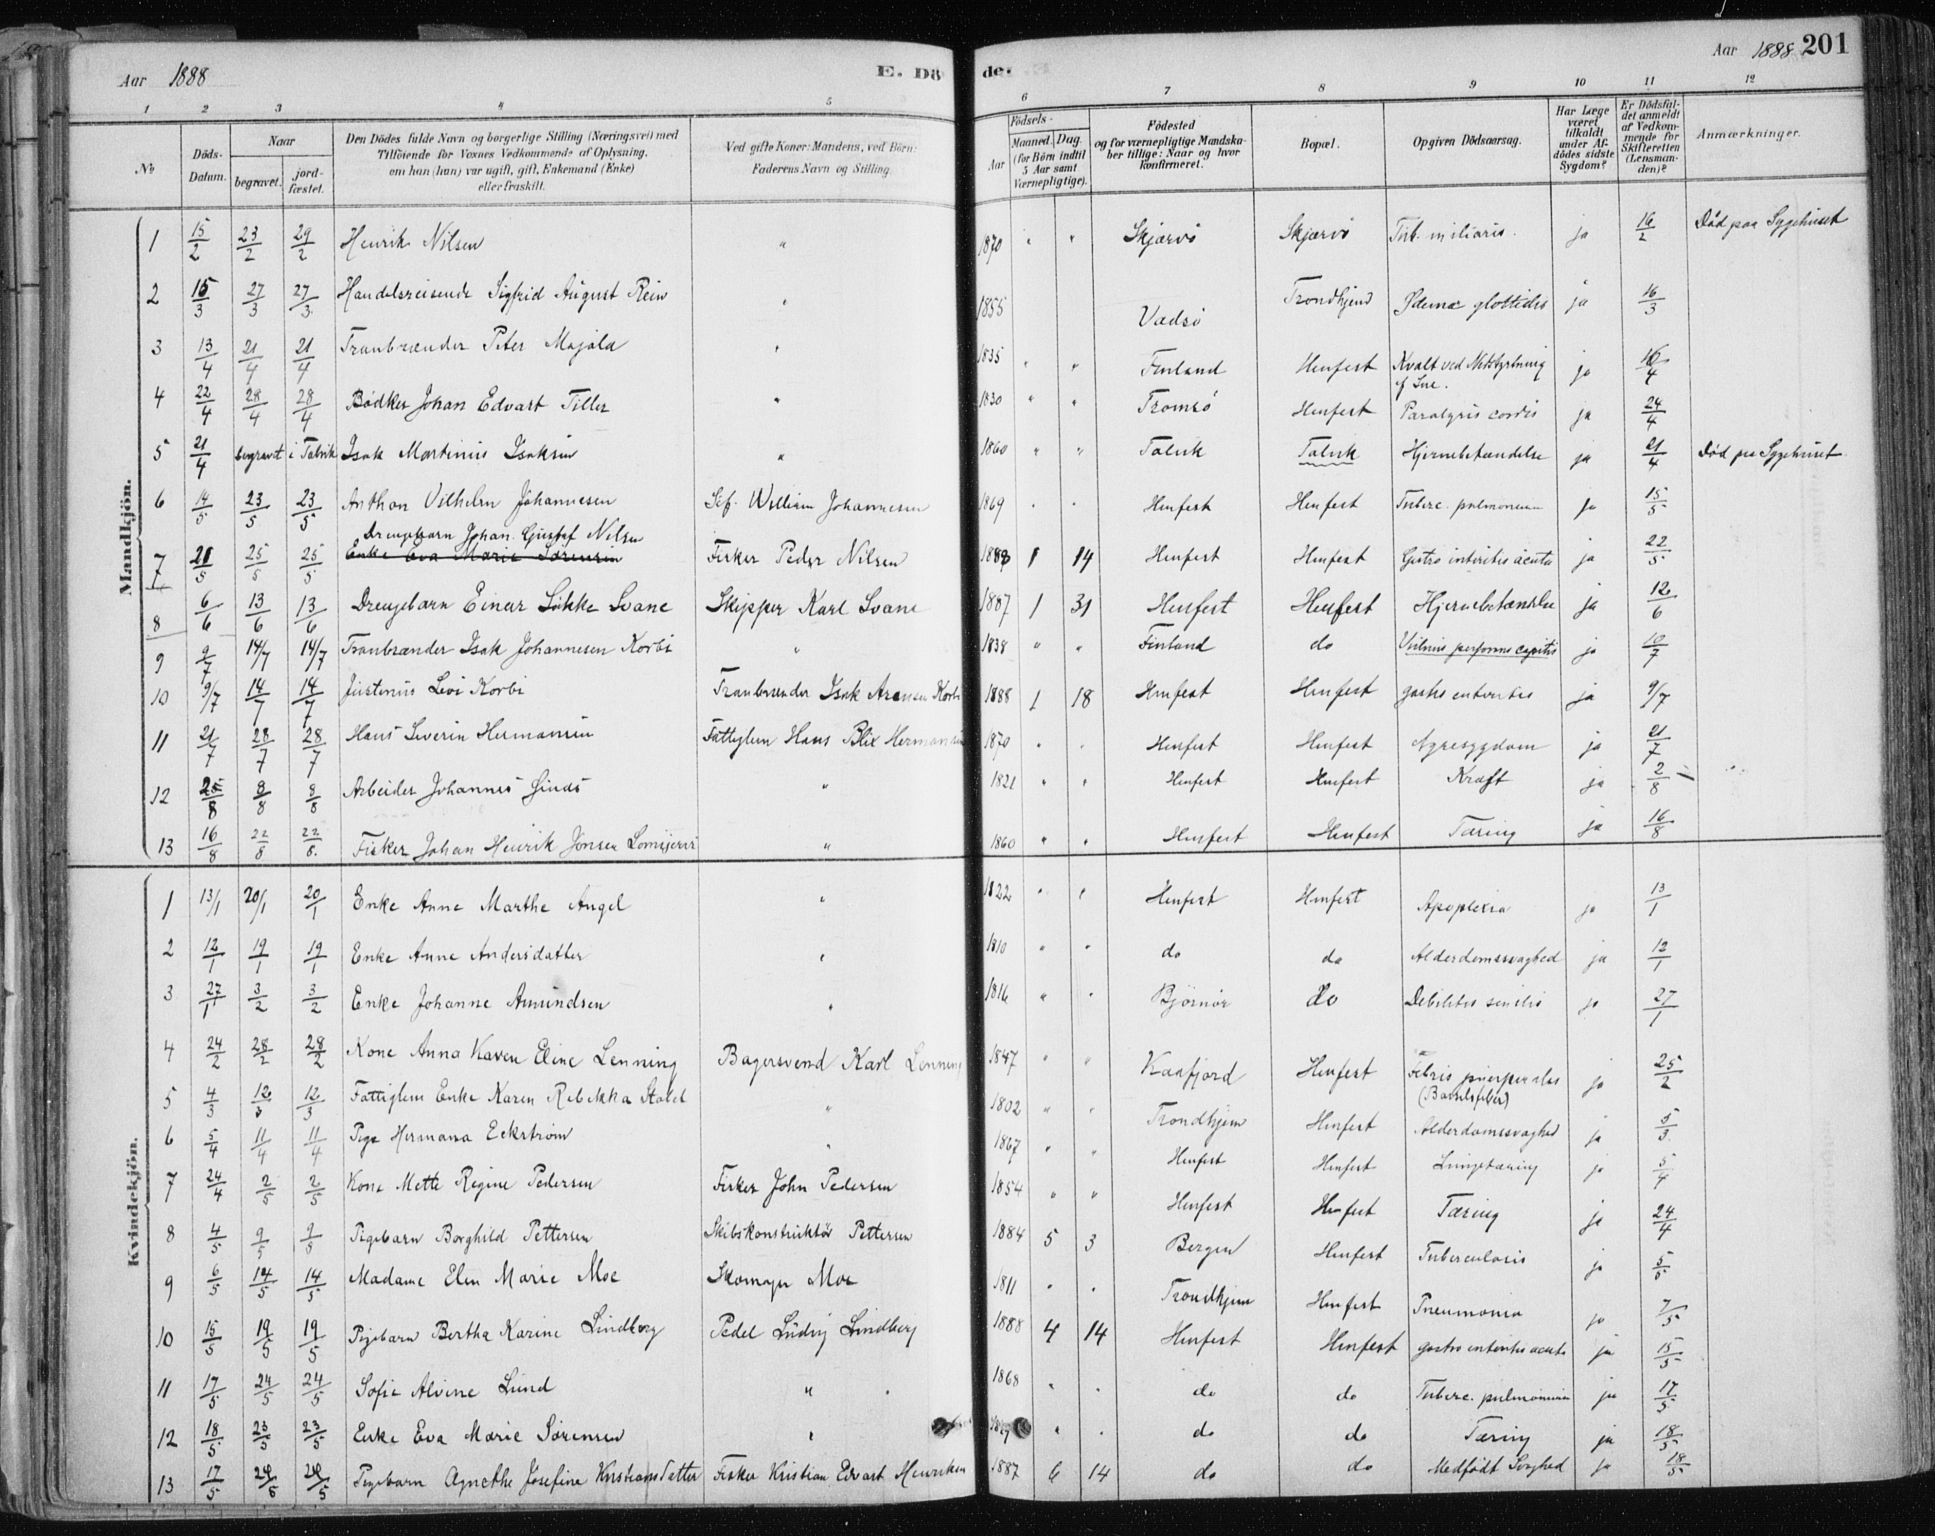 Aar 1888 E. Dö
de. Aar 1888 201
1 2 3 4 5 6 7 8 9 10 11 12
No
Döds-Datum.
Naar
begravet.
jord-fæstet.
Den Dödes fulde Navn og borgerlige Stilling (Næringsvei) med
Tilföiende for Voxnes Vedkommende af Oplysning,
om han (hun) var ugift, gift, Enkemand (Enke)
eller fraskilt.
Ved gifte Koner: Mandens, ved Börn:
Faderens Navn og Stilling.
Födsels-
Aar
Maaned. Dag.
(for Börn indtil
5 Aar samt
Værnepligtige).
Födested
og for værnepligtige Mandska-
ber tillige: Naar og hvor
konfirmeret.
Bopæl.
Opgiven Dödsaarsag.
Har Læge
været
tilkaldt
under Af-
dödes sidste
Sygdom?
Er Dödsfal-
det anmeldt
af Vedkom-
mende for
Skifteretten
(Lensman-
den)?
Anmærkninger.
Mandkjön.
1 15/2 23/2 29/2 Henrik Nilsen " 1870 " " Skjærvö Skjærvö Tub. miliaris. ja 16/2 Död paa Sygehuset
2 15/3 27/3 27/3 Handelsreisende Sigfrid August Rein " 1855 Vadsö Trondhjem Ødema glottidis ja 16/3
3 13/4 21/4 21/4 Tranbrænder Peter Majala " 1835 " " Finland Hmfest Kvalt ved Nedstyrtning af Sne. ja 16/4
4 22/4 28/4 28/4 Bödker Johan Edvart Tiller " 1830 " " Tromsö Hmfest Paralysis cordis ja 24/4
5 21/4 begravet i Talvik Isak Martinus Isaksen " 1860 " " Talvik Talvik Hjernebetændelse ja 21/4 Död paa Sygehuset
6 14/5 23/5 23/5 Anthon Vilhelm Johannesen William Johannesen 1869 " " Hmfest Hmfest Tuberc. pulmonum ja 15/5
7 21/5 25/5 25/5 Drengebarn Johan Gustaf Nilsen Fisker Peder Nilsen 1888 1 14 Hmfest Hmfest Gastro enteritis acuta ja 22/5
Enke Eva Marie Sørensen
8 6/6 13/6 13/6 Drengebarn Einar Løkke Svane Skipper Karl Svane 1887 1 31 Hmfest Hmfest Hjernebetændelse ja 12/6
9 9/7 14/7 14/7 Tranbrænder Isak Johannesen Korbi " 1838 " " Finland do ja 10/7
10 9/7 14/7 14/7 Justinus Levi Korbi Tranbrænder Isak Korbi 1888 1 18 Hmfest Hmfest gastro enteritis ja 9/7
11 21/7 28/7 28/7 Hans Severin Hermansen Fattiglem Hans Blix Hermansen 1870 " " Hmfest Hmfest Nyresygdom ja 21/7
12 25/8 8/8 8/8 Arbeider Johannes " 1821 " " Hmfest Hmfest Kræft ja 2/8
13 16/8 22/8 22/8 Fisker Johan Henrik Jonsen " 1860 " " Hmfest Hmfest Tæring ja 16/8
Kvindekjön.
1 13/1 20/1 20/1 Enke Anne Marthe Angel " 1822 " " Hmfest Hmfest Apoplexia ja 13/1
2 12/1 19/1 19/1 Enke Anne Andersdatter " 1810 " " do do Alderdomssvaghed ja 12/1
3 27/1 3/2 3/2 Enke Johanne Amundsen " 1816 " " Bjørnör do Debilitas senilis ja 27/1
4 24/2 28/2 28/2 Kone Anna Karen Eline Lenning Bagersvend Karl Lenning 1847 " " Kaafjord Hmfest Febris puerperalis (Barselfeber) ja 25/2
5 4/3 12/3 12/3 Fattiglem Enke Karen Rebekka Stabel " 1802 " " Trondhjem Hmfest Alderdomssvaghed ja 5/3
6 5/4 11/4 11/4 Pige Hermana Eckstrøm " 1867 " " Hmfest Hmfest Lungetæring ja 5/4
7 24/4 2/5 2/5 Kone Mette Regine Pedersen Fisker John Pedersen 1854 " " Hmfest Hmfest Tæring ja 24/4
8 4/5 9/5 9/5 Pigebarn Borghild Pettersen Skibskonstruktør Pettersen 1884 5 3 Bergen Hmfest Tuberculosis ja 5/5
9 6/5 14/5 14/5 Madame Elen Marie Moe Skomager Moe 1811 " " Trondhjem Hmfest Pneumonia ja 7/5
10 15/5 19/5 19/5 Pigebarn Bertha Karine Lindberg Pedel Ludvig Lindberg 1888 4 14 Hmfest Hmfest gastro enteritis acuta ja 15/5
11 17/5 24/5 24/5 Sofie Alvine Lund " 1868 " " do do Tuberc. pulmonum ja 17/5
12 18/5 23/5 23/5 Enke Eva Marie Sørensen " " " do do Tæring ja 18/5
13 17/5 24/5 24/5 Pigebarn Agnethe Josefine Kristiansdatter Fisker Kristian Edvart Henriksen 1887 6 14 do do Medfödt Svaghed ja 18/5